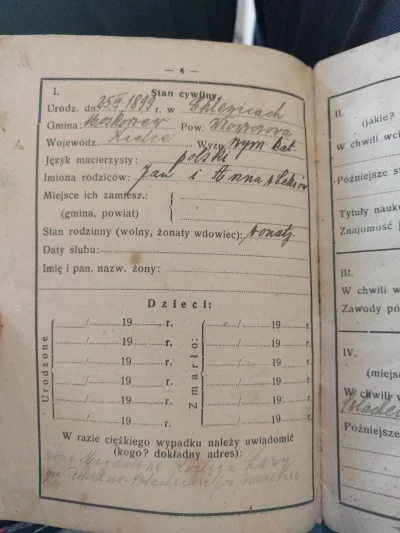 — 4 —
I. Stan cywilny
Urodz. dn. 25 1899 r. w Chlewicach
Gmina: Moskorzew Pow. Włoszczowa
Wojewódz. Kielce Wyzn. rzym. kat.
Język macierzysty: polski
Imiona rodziców: Jan i Anna z
Miejsce ich zamiesz.:
(gmina, powiat)
Stan rodzinny (wolny, żonaty wdowiec): żonaty
Daty ślubu:
Imię i pan. nazw. żony:
Dzieci:
Urodzone
/ 19 r.
/ 19 r.
/ 19 r.
/ 19 r.
/ 19 r.
/ 19 r.
Zmarło:
/ 19 r.
/ 19 r.
/ 19 r.
/ 19 r.
/ 19 r.
/ 19 r.
W razie ciężkiego wypadku należy uwiadomić
(kogo? dokładny adres):
żonę
II.
(jakie?
W chwili wci
Późniejsze st
Tytuły nauko
Znajomość j
III.
W chwili w
Zawody pó
IV.
(miejs
W chwili w
Późniejsze